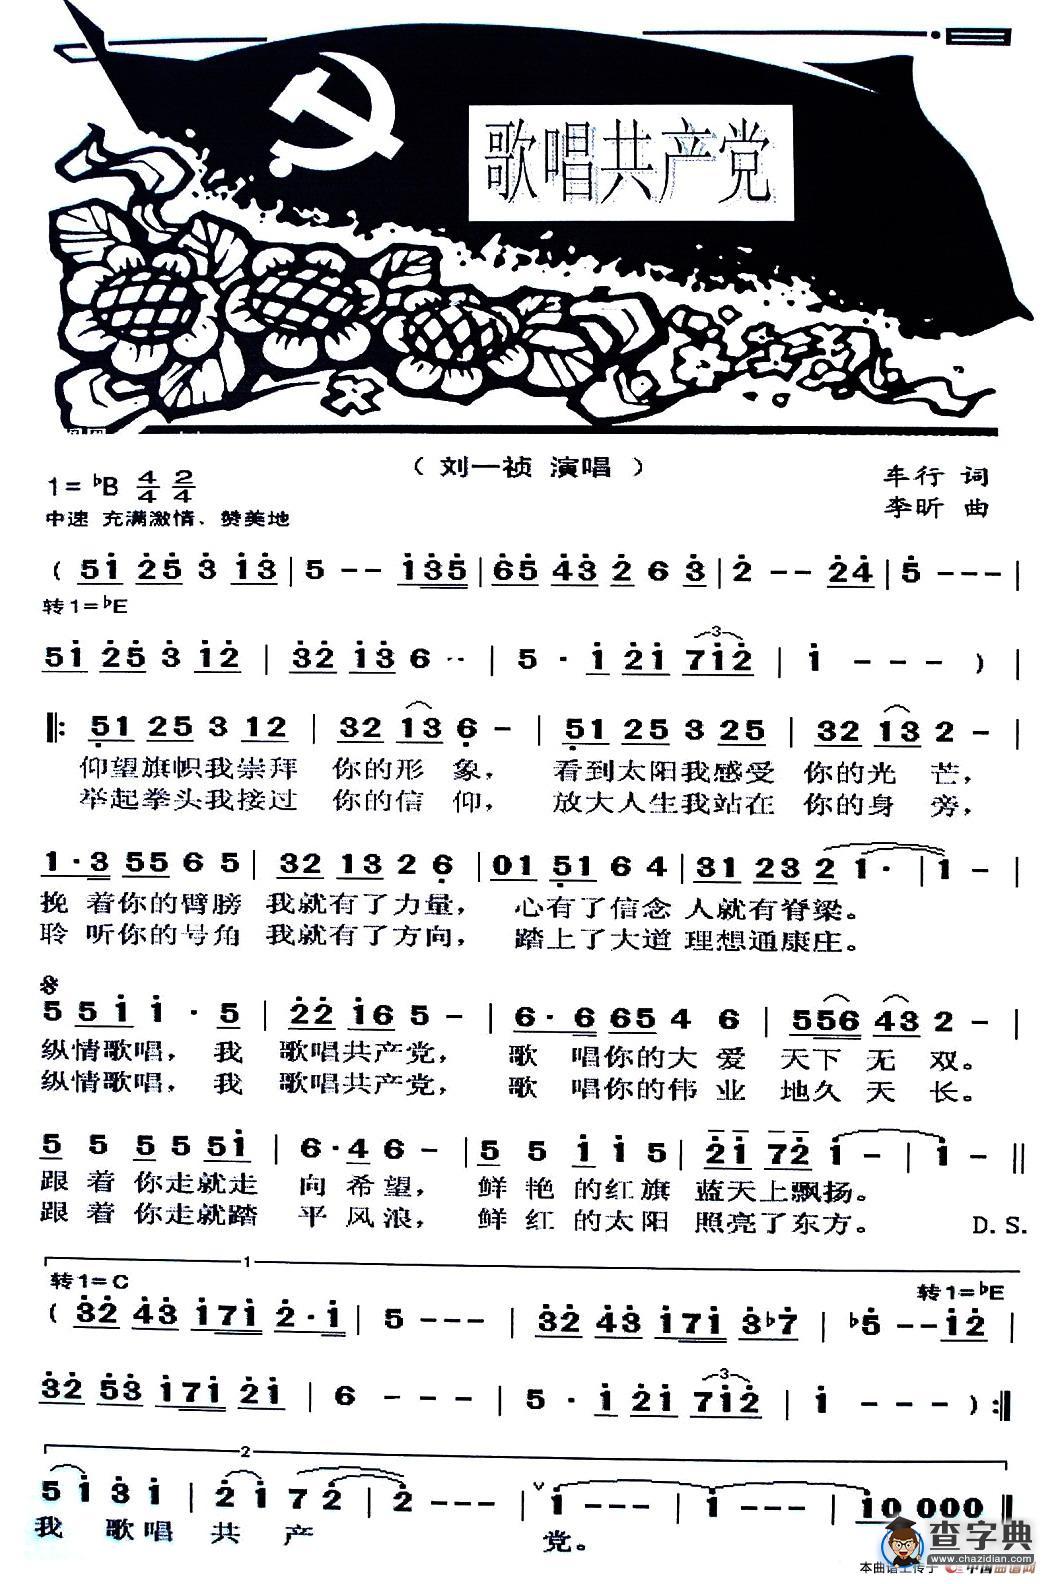 歌唱共产党
（刘一祯 演唱）
车行 词
李昕 曲
1=♭B 4/4 2/4
中速 充满激情、赞美地
( 5i 2̇5̇ 3̇ i3̇ | 5 - - i3̇5̇ | 6̇5̇ 4̇3̇ 2̇ 6 3̇ | 2̇ - - 2̇4̇ | 5̇ - - - |
转1=♭E
5i 2̇5̇ 3̇ i2̇ | 3̇2̇ i3̇ 6 ·· | 5 · i 2̇i 7i2̇ | i - - - ) |
‖: 5̣1 25 3 12 | 32 13 6̣ - | 5̣1 25 3 25 | 32 13 2 - |
仰望旗帜我崇拜 你的形 象， 看到太阳我感受 你的光 芒，
举起拳头我接过 你的信 仰， 放大人生我站在 你的身 旁，
1·3 55 6 5 | 32 13 2 6̣ | 01 5̣1 6 4 | 31 23 2 1· | 1 - |
挽 着你的臂膀 我就有了力量， 心有了信念 人就有脊梁。
聆 听你的号角 我就有了方向， 踏上了大道 理想通康庄。
5 5i i · 5 | 2̇2̇ i6 5 - | 6·6 65 4 6 | 556 43 2 - |
纵情歌唱， 我 歌唱共产党， 歌 唱你的大 爱 天下 无 双。
纵情歌唱， 我 歌唱共产党， 歌 唱你的伟 业 地久 天 长。
5 5 5 5 5i | 6·4 6 - | 5 5 i i 5 | 2̇i 72̇ i - | i - ‖
跟 着 你走就走 向 希望， 鲜 艳 的红旗 蓝天上飘扬。
跟 着 你走就踏 平 风浪， 鲜 红 的太阳 照亮了东方。 D.S.
1
转1=C 转1=♭E
( 3̇2̇ 4̇3̇ i7i 2̇·i | 5 - - - | 3̇2̇ 4̇3̇ i7i 3̇♭7 | ♭5 - - i2̇ |
3̇2̇ 5̇3̇ i7i 2̇i | 6 - - - | 5 · i 2̇i 7i2̇ | i - - - ) :‖
2
5 i 3̇ i | 2̇ i 7 2̇ | 2̇ - - - | i - - - | i - - - | i0 000 ‖
我 歌唱 共 产 党。
查字典
www.chazidian.com
本曲谱上传于 中国曲谱网